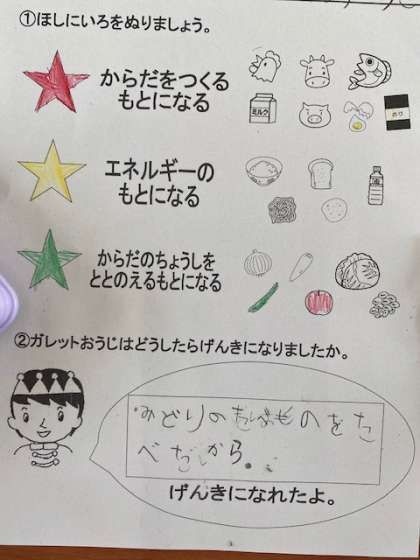 ①ほしにいろをぬりましょう。
からだをつくる
もとになる
ミルク
のり
エネルギーの
もとになる
からだのちょうしを
ととのえるもとになる
②ガレットおうじはどうしたらげんきになりましたか。
みどりのたべものをた
べだから。
げんきになれたよ。